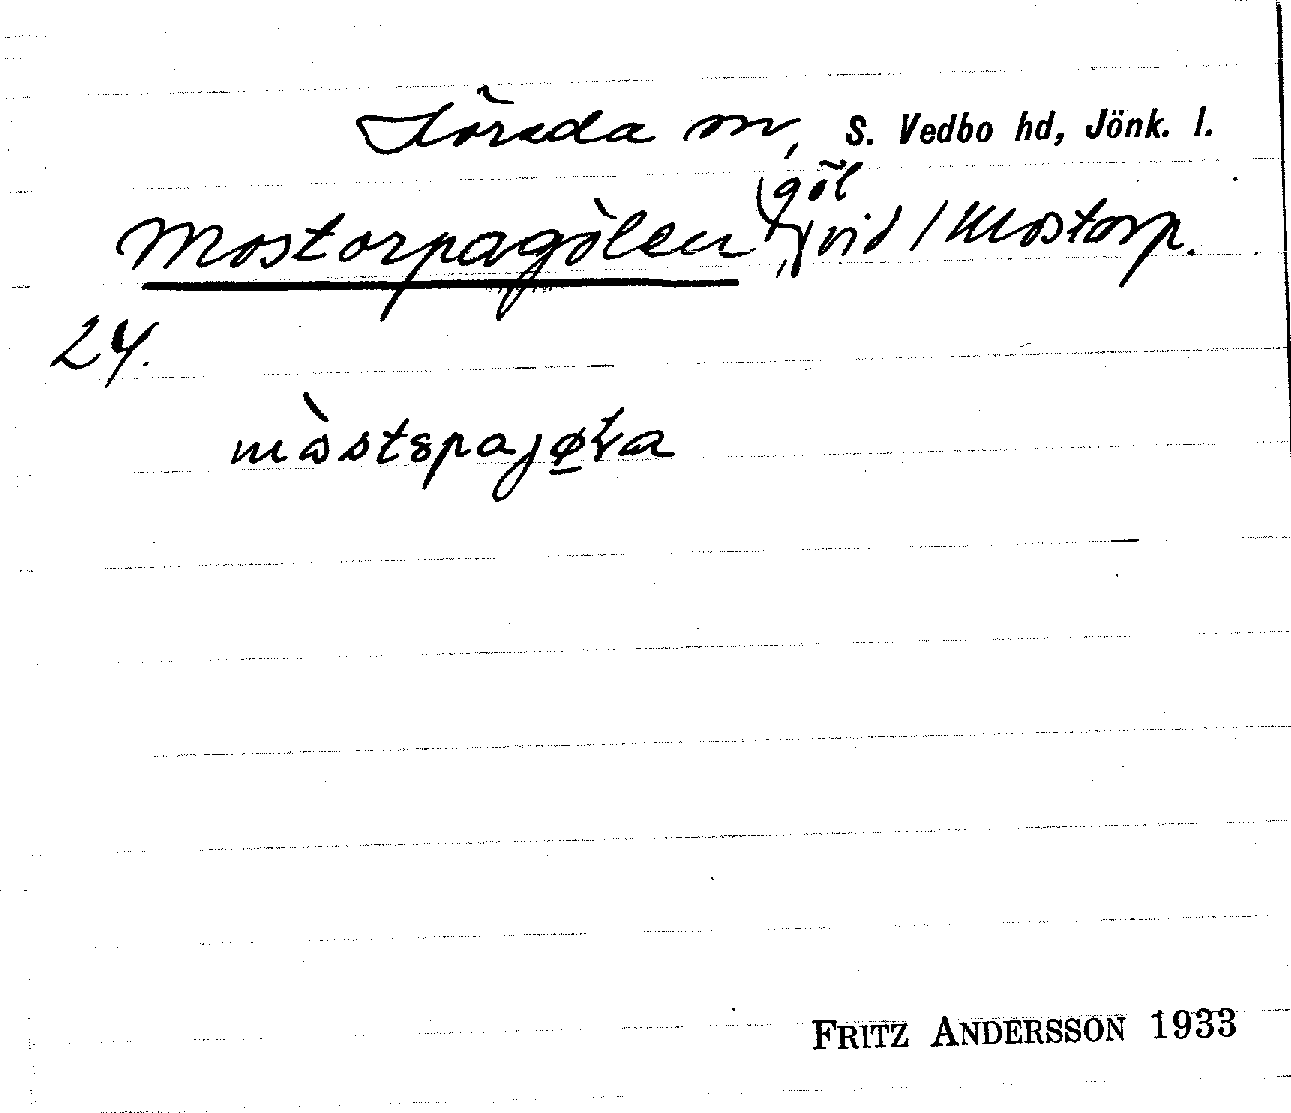 Lörsda sn, S. Vedbo hd, Jönk. l.
göl
Mostorpagölen vid / Mostorp.
24.
mòstspajøła
FRITZ ANDERSSON 1933